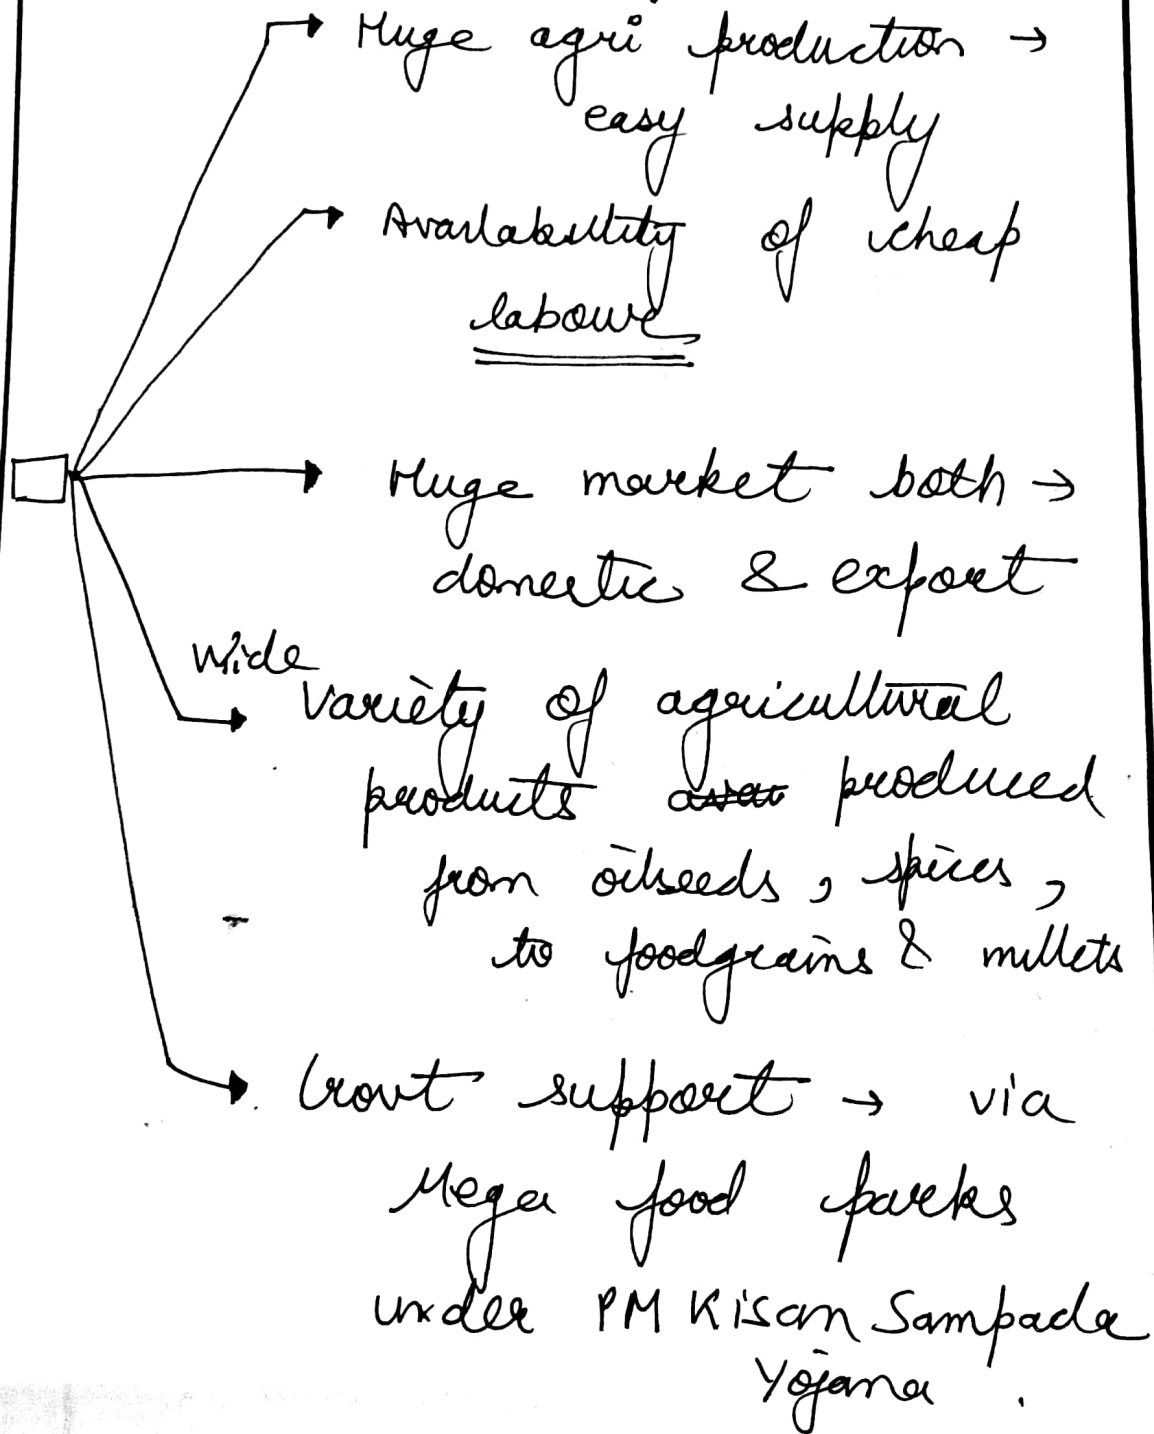 Huge agri production →
easy supply
Availability of cheap
labour
Huge market both →
domestic & export
Wide
Variety of agricultural
products produced
from oilseeds, spices,
to foodgrains & millets
Govt support → via
Mega food parks
under PM Kisan Sampada
Yojana.